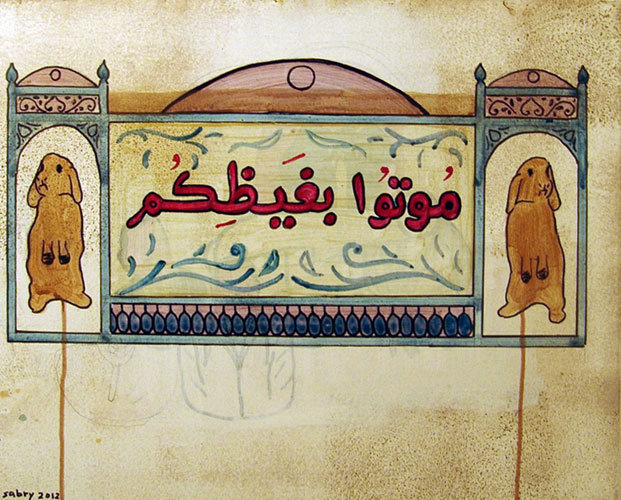 مُوتُوا بغَيظِكُم
sabry 2012